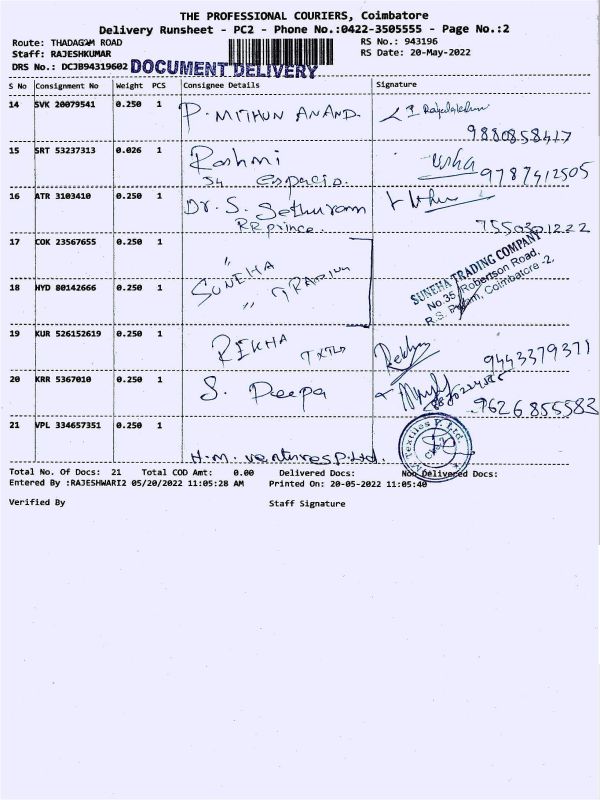 THE PROFESSIONAL COURIERS, Coimbatore
Delivery Runsheet - PC2 - Phone No.:0422-3505555 - Page No.:2
Route: THADAGAM ROAD
RS No.: 943196
Staff: RAJESHKUMAR
RS Date: 20-May-2022
DRS No.: DCJB94319602 DOCUMENT DELIVERY
S No Consignment No Weight PCS Consignee Details Signature
14 SVK 20079541 0.250 1 P. MITHUN ANAND.
9880858417
15 SRT 53237313 0.026 1 Rashmi Usha
34 espacio. 9787412505
16 ATR 3103410 0.250 1 Dr. S. Sethuram
RR prince. 7550301222
17 COK 23567655 0.250 1 "
SUNEHA TRADING COMPANY
No.35, Robertson Road,
R.S. Puram, Coimbatore -2.
18 HYD 80142666 0.250 1 SUNEHA
" TRADING
19 KUR 526152619 0.250 1 REKHA Rekha
9443379371
20 KRR 5367010 0.250 1 S. Deepa
9626855583
21 VPL 334657351 0.250 1 H.M. ventures P. Ltd.
Textiles P. Ltd.
Total No. Of Docs: 21 Total COD Amt: 0.00 Delivered Docs: Non Delivered Docs:
Entered By :RAJESHWARI2 05/20/2022 11:05:28 AM Printed On: 20-05-2022 11:05:40
Verified By Staff Signature